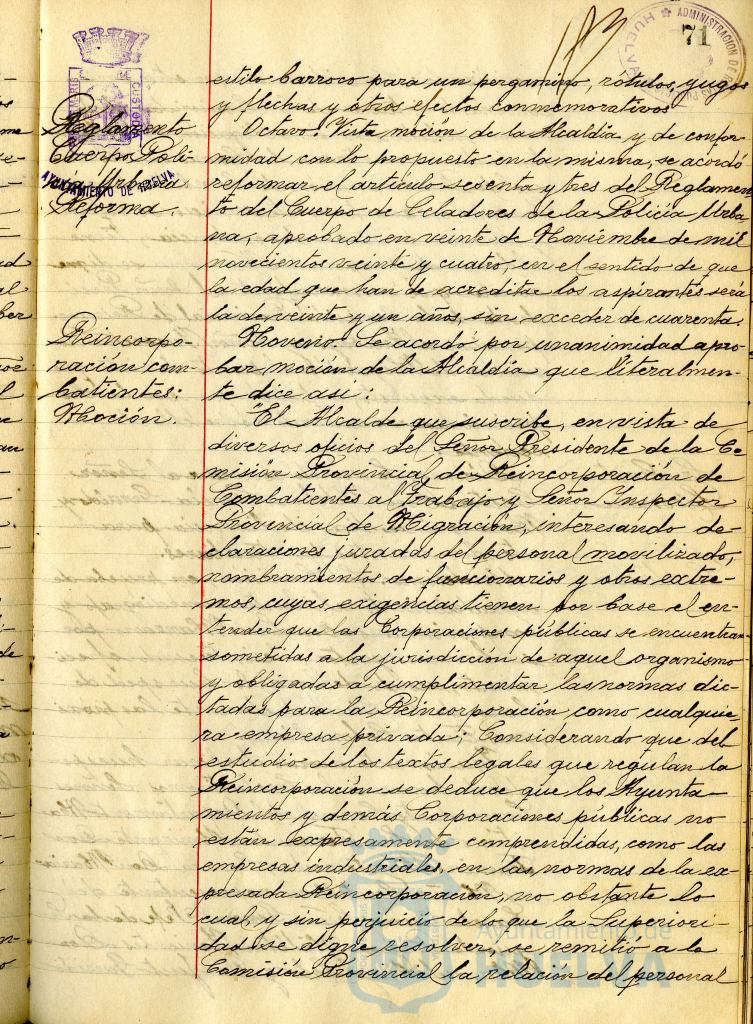 71
ADMINISTRACION DE
HUELVA
estilo barroco para un pergamino, rótulos, yugos
y flechas y otros efectos conmemorativos
Reglamento
Cuerpo Poli-
cia Urbana
Reforma.
AYUNTAMIENTO DE HUELVA
Octavo. Vista moción de la Alcaldía y de confor-
midad con lo propuesto en la misma, se acordó
reformar el artículo sesenta y tres del Reglamen-
to del Cuerpo de Celadores de la Policía Urba-
na, aprobado en veinte de Noviembre de mil
novecientos veinte y cuatro, en el sentido de que
la edad que han de acreditar los aspirantes será
la de veinte y un años, sin exceder de cuarenta.
Reincorpo-
ración com-
batientes:
Moción.
Noveno. Se acordó por unanimidad apro-
bar moción de la Alcaldía que literalmen-
te dice asi:
"El Alcalde que suscribe, en vista de
diversos oficios del Señor Presidente de la Co-
misión Provincial de Reincorporación de
Combatientes al Trabajo y Señor Inspector
Provincial de Migración, interesando de-
claraciones juradas del personal movilizado,
nombramientos de funcionarios y otros extre-
mos, cuyas exigencias tienen por base el en-
tender que las Corporaciones públicas se encuentran
sometidas a la jurisdicción de aquel organismo
y obligadas a cumplimentar las normas dic-
tadas para la Reincorporación como cualquie-
ra empresa privada; Considerando que del
estudio de los textos legales que regulan la
Reincorporación se deduce que los Ayunta-
mientos y demás Corporaciones públicas no
están expresamente comprendidas, como las
empresas industriales, en las normas de la ex-
presada Reincorporación, no obstante lo
cual, y sin perjuicio de lo que la Superiori-
dad se digne resolver, se remitió a la
Comisión Provincial la relación del personal
Ayuntamiento de
HUELVA